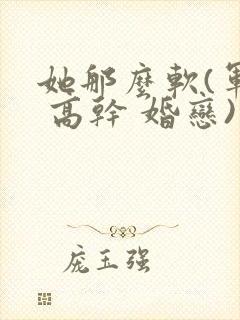 她那麼軟(軍
高幹 婚戀)
庞玉强